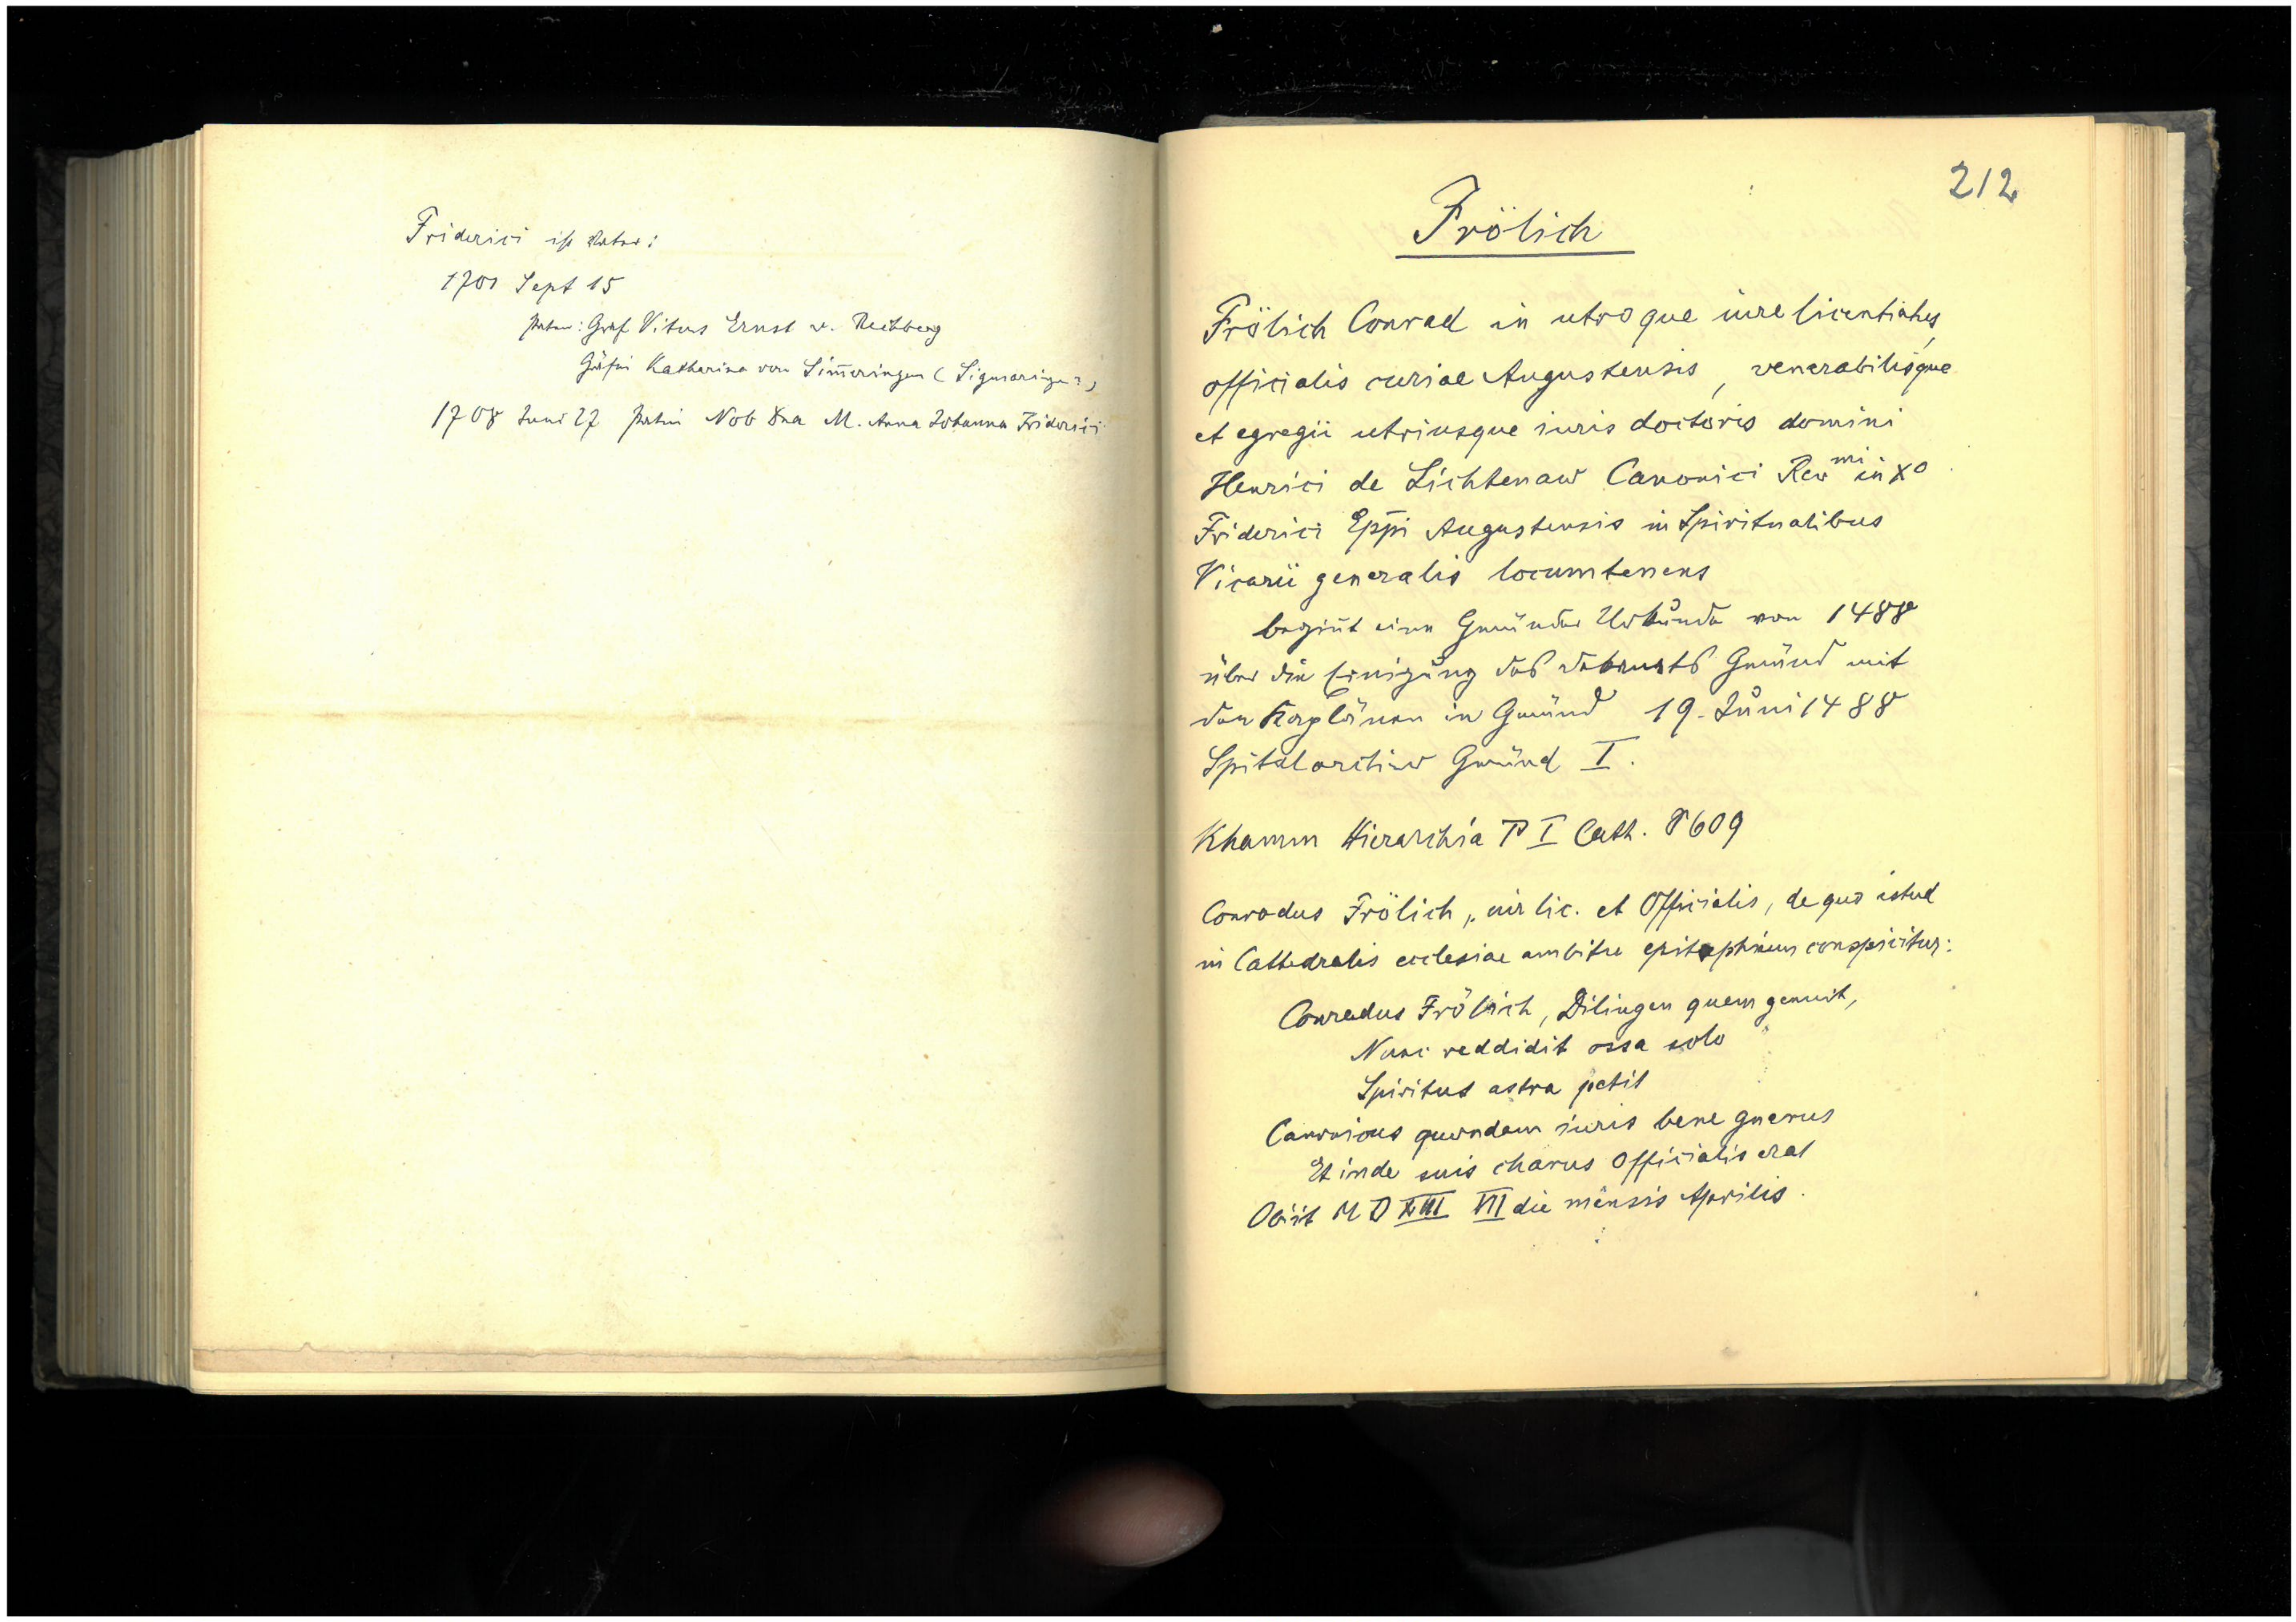 Friderici ist Vater:
1701 Sept 15
Paten: Graf Vitus Ernst v. Rechberg
Gräfin Katharina von Sim̅eringen (Sigmaringen?)
1708 Juni 27 Patin Nob Dna M. Anna Johanna Friderici
212
Frölich
Frölich Conrad in utroque iure licentiatus,
officialis curiae Augustensis, venerabilisque
et egregii utriusque iuris doctoris domini
Henrici de Lichtenaw Canonici Rev mi in Xo
Friderici Epp̅i Augustensis in Spiritualibus
Vicarii generalis locumtenens
begin̅t eine Gmünder Urkunde von 1488
über die Einigung des Gmünd mit
den Kaplänen in Gmünd 19. Juni 1488
Spitalarchiv Gmünd I.
Khamm Hierarchia P I Cath. 609
Conradus Frölich, iur lic. et Officialis, de quo istud
in Cathedralis ecclesiae ambitu epitaphium conspicitur:
Conradus Frölich, Dilingen quem genuit,
Nunc reddidit ossa solo
Spiritus astra petit
Canonicus quondam iuris bene gnarus
Et inde suis charus Officialis erat
Obiit M D XIII VII die mensis Aprilis.